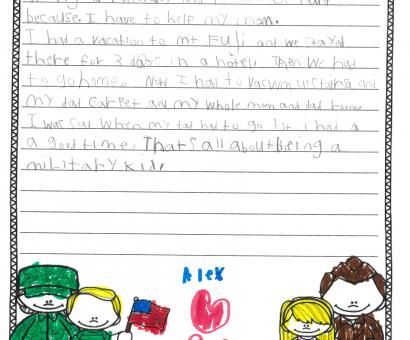 because. I have to help my mom.
I had a vacation to mt Fuji and we stayed
there for 3 days in a hotel. Then we had
to go home. Now I had to vacuum upstairs and
my dad carpet and my whole mom and dad
I was sad when my dad had to go I had
a good time. Thats all about being a
military kid.
Alex